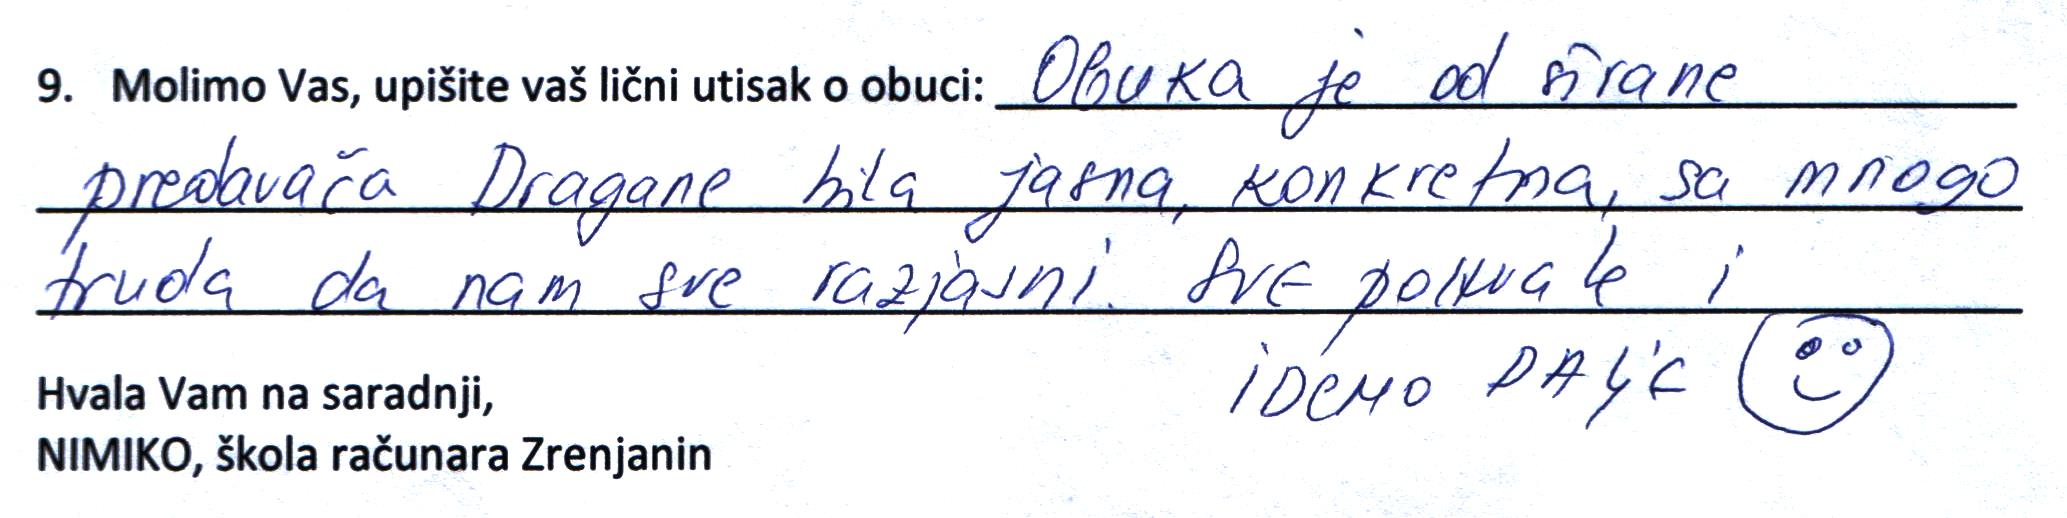 9. Molimo Vas, upišite vaš lični utisak o obuci: Obuka je od strane
predavača Dragane bila jasna, konkretna, sa mnogo
truda da nam sve razjasni. Sve pohvale i
iDEMO DALJE
Hvala Vam na saradnji,
NIMIKO, škola računara Zrenjanin